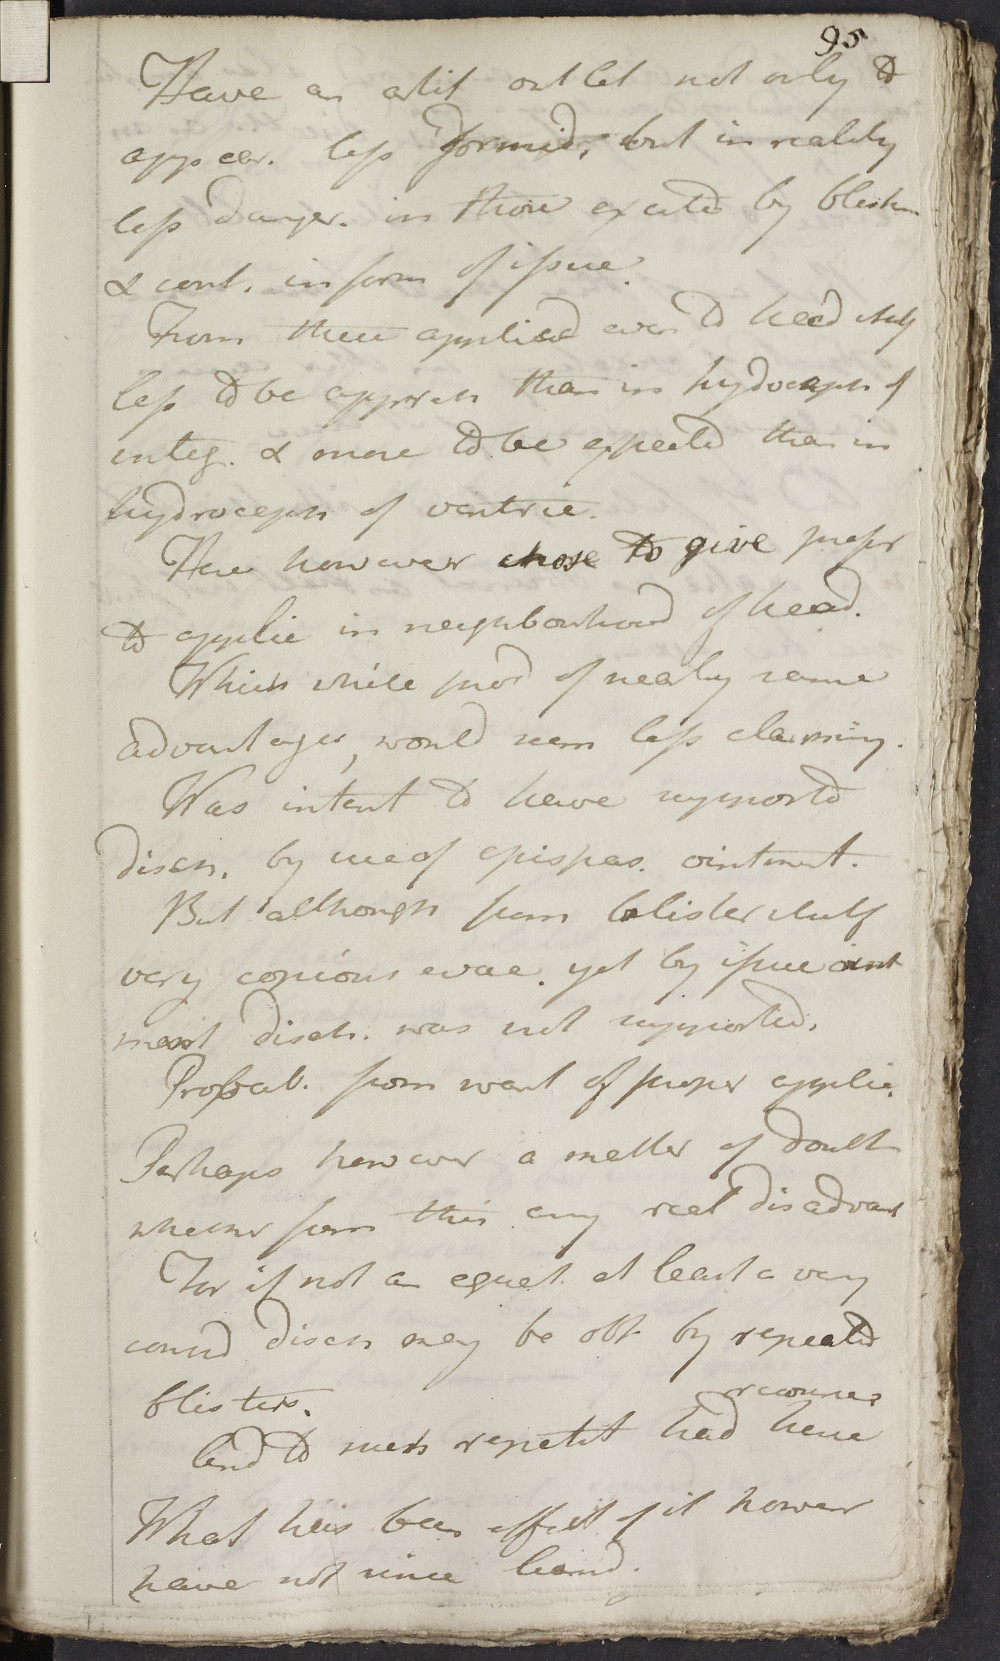 95
Have an artif outlet not only to
appear. less formid, but in reality
less danger. in those excited by blister
& cont. in form of issue
From these applied even to head itself
less to be appreh than in hydroceph of
integ. & more to be expected than in
hydroceph of ventric.
Here however chose to give prefer
to applic in neighbourhood of head.
Which while prod of nearly same
advantages, would seem less alarming.
Was intent to have supported
disch. by use of epispas. ointment.
But although from blister itself
very copious evac. yet by issue oint
ment disch. was not supported.
Probab. from want of proper applic.
Perhaps however a matter of doubt
whether from this any real disadvant
For if not an equal at least a very
consid disch may be obt by repeated
blisters.
recourse
And to such repetit had here
What has been effect of it however
have not since heard.